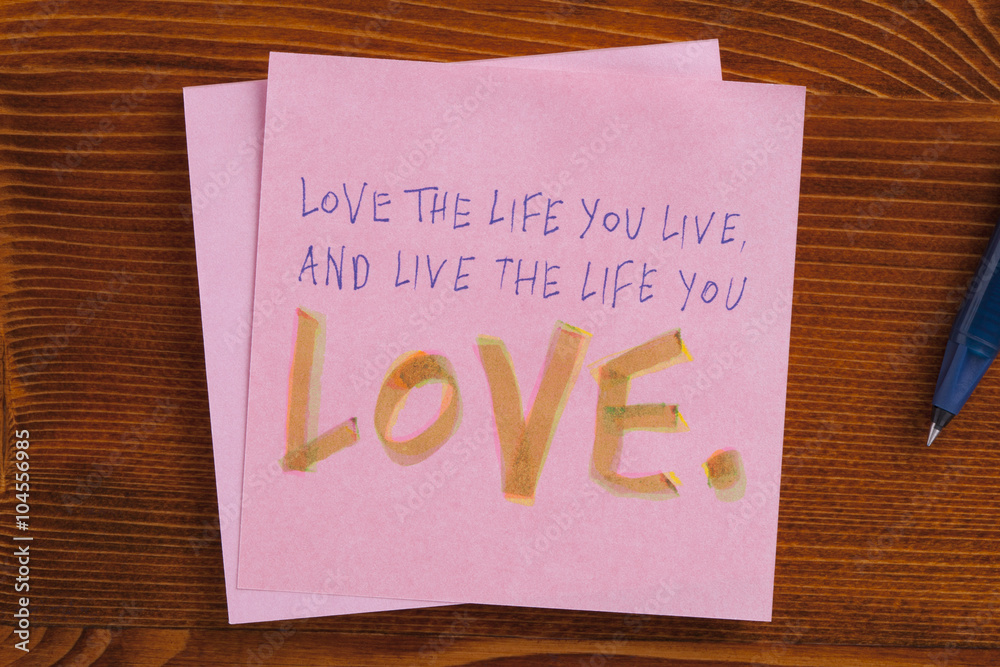 LOVE THE LIFE YOU LIVE,
AND LIVE THE LIFE YOU
LOVE.
Adobe Stock | #104556985